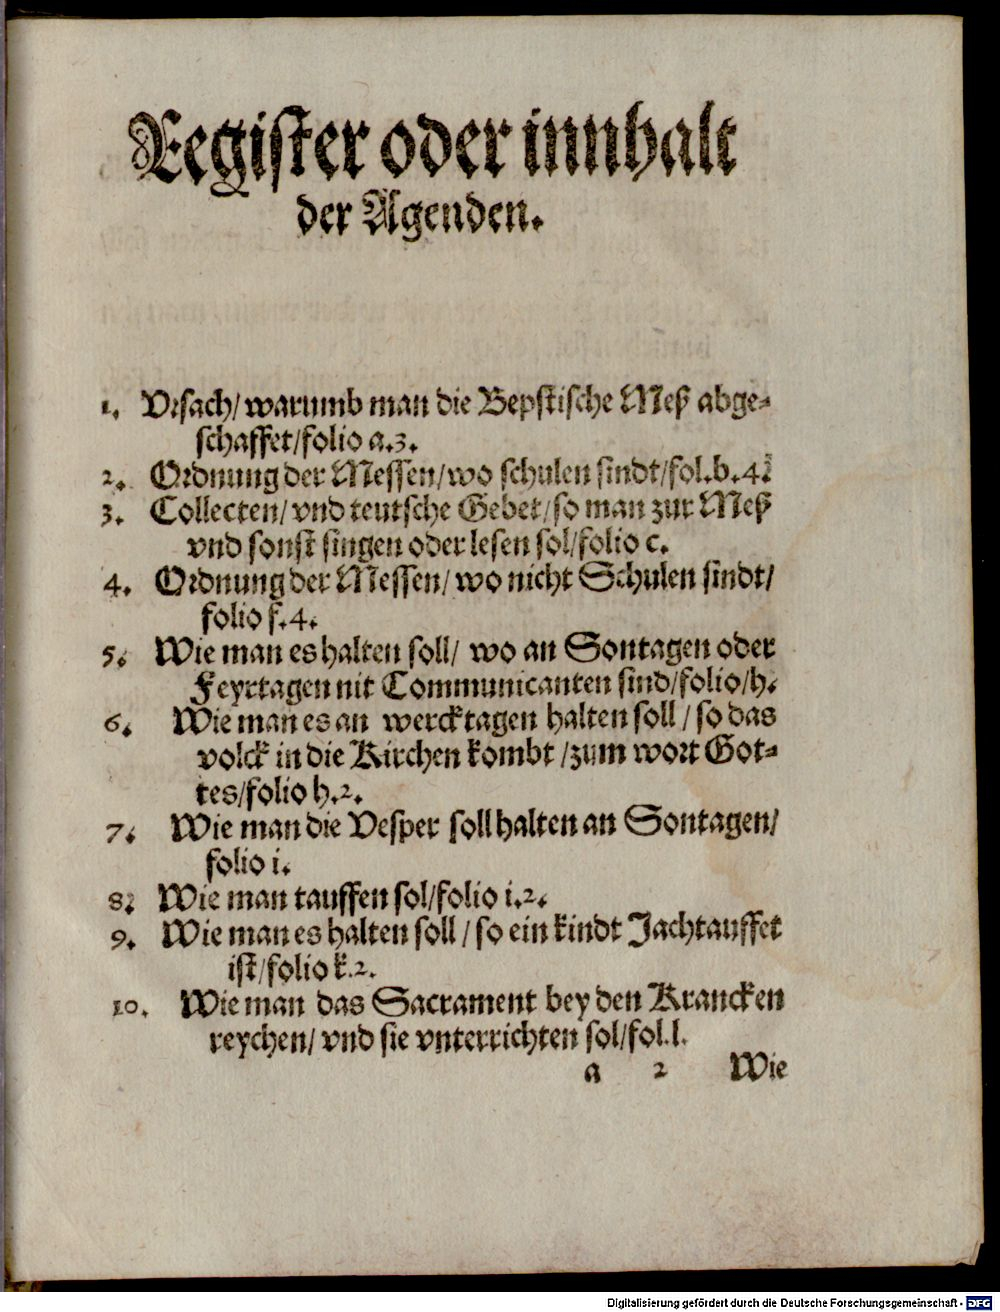 Register oder innhalt
der Agenden.
1. Vrsach/ warumb man die Bepstische Meß abge-
schaffet/folio a.3.
2. Ordnung der Messen/wo schulen sindt/fol.b.4.
3. Collecten/ vnd teutsche Gebet/so man zur Meß
vnd sonst singen oder lesen sol/folio c.
4. Ordnung der Messen/ wo nicht Schulen sindt/
folio f.4.
5. Wie man es halten soll/ wo an Sontagen oder
Feyrtagen nit Communicanten sind/folio/h.
6. Wie man es an wercktagen halten soll / so das
volck in die Kirchen kombt /zum wort Got-
tes/folio h.2.
7. Wie man die Vesper soll halten an Sontagen/
folio i.
8. Wie man tauffen sol/folio i.2.
9. Wie man es halten soll / so ein kindt Jachtauffet
ist/folio k.2.
10. Wie man das Sacrament bey den Krancken
reychen/ vnd sie vnterrichten sol/fol.l.
a 2 Wie
Digitalisierung gefördert durch die Deutsche Forschungsgemeinschaft - DFG